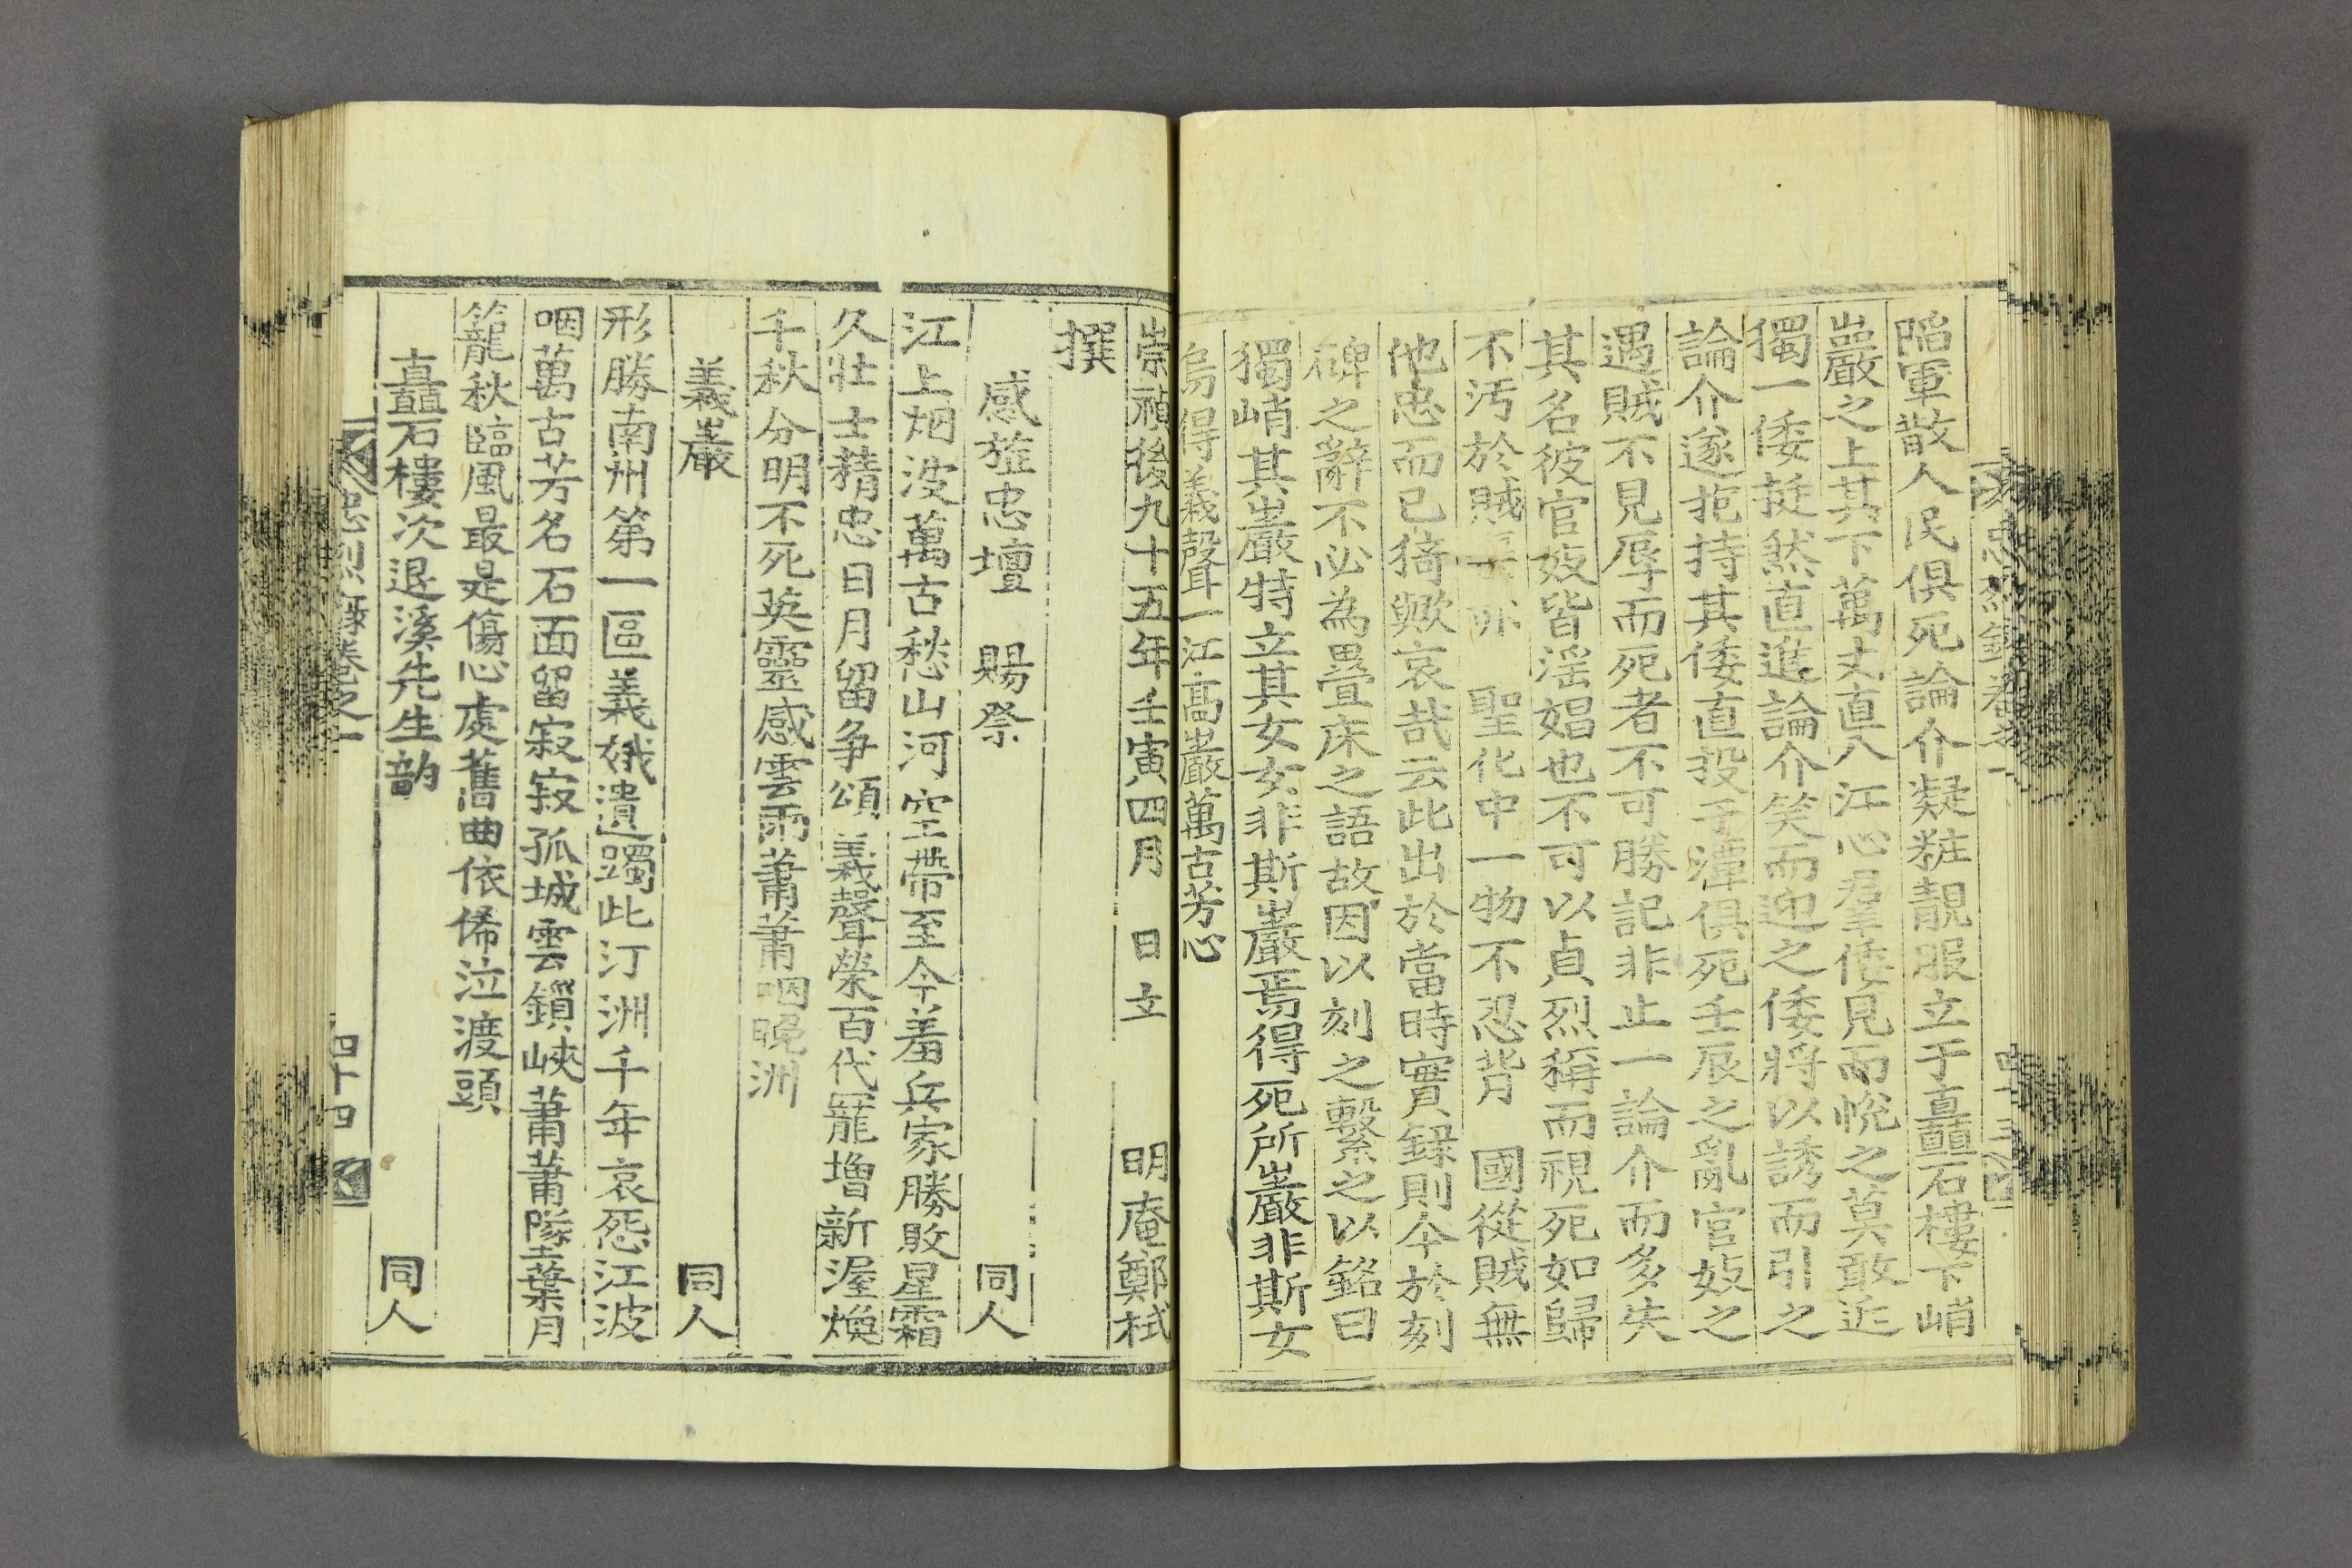 忠烈錄卷之一
陷軍散人民俱死論介凝粧靚服立于矗石樓下峭
巖之上其下萬丈直入江心群倭見而悅之莫敢近
獨一倭挺然直進論介笑而迎之倭將以誘而引之
論介遂抱持其倭直投于潭俱死壬辰之亂官妓之
遇賊不見辱而死者不可勝記非止一論介而多失
其名彼官妓皆淫娼也不可以貞烈稱而視死如歸
不汚於賊 亦 聖化中一物不忍背 國從賊無
他忠而已猗歟哀哉云此出於當時實錄則今於刻
碑之辭不必為疊床之語故因以刻之繫之以銘曰
獨峭其巖特立其女女非斯巖焉得死所巖非斯女
烏得義聲一江高巖萬古芳心
崇禎後九十五年壬寅四月 日立 明庵鄭栻
撰
感旌忠壇 賜祭 同人
江上烟波萬古愁山河空帶至今羞兵家勝敗星霜
久壯士精忠日月留爭頌義聲榮百代罷增新渥煥
千秋分明不死英靈感雲雨蕭蕭咽晩洲
義巖 同人
形勝南州第一區義娥遺躅此汀洲千年哀怨江波
咽萬古芳名石面留寂寂孤城雲鎖峽蕭蕭隊葉月
籠秋臨風最是傷心處舊曲依俙泣渡頭
矗石樓次退溪先生韵 同人
忠烈錄卷之一 四十四